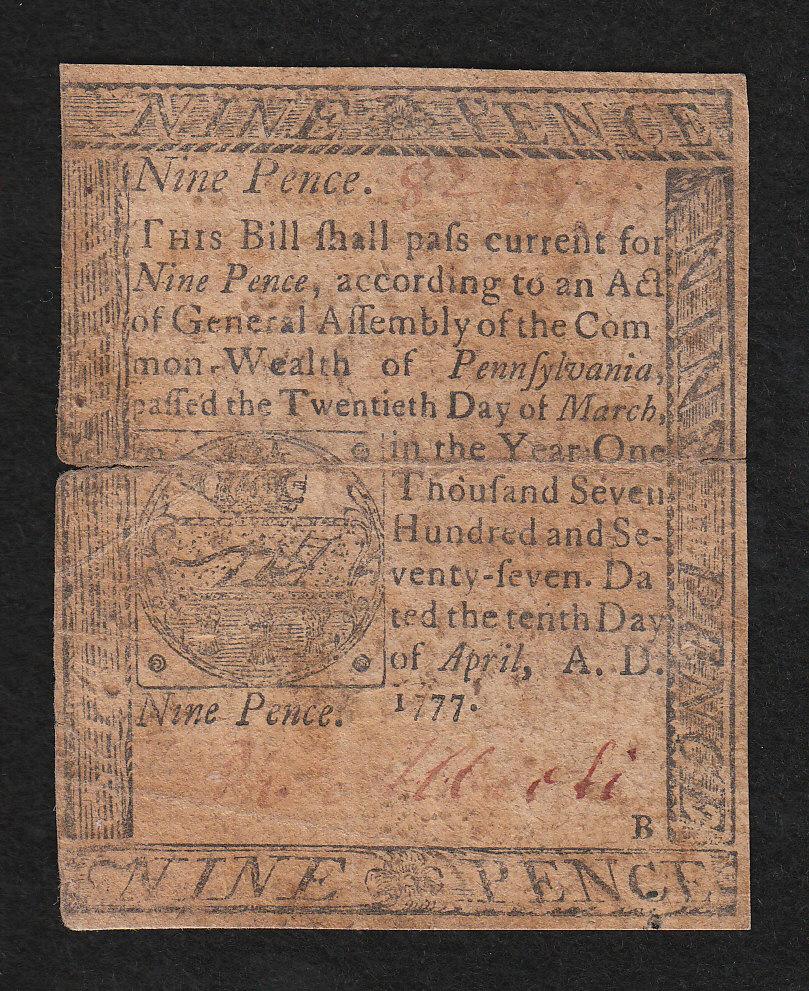 NINE PENCE
Nine Pence.
THIS Bill ſhall paſs current for
Nine Pence, according to an Act
of General Aſſembly of the Com
mon-Wealth of Pennſylvania,
paſſed the Twentieth Day of March,
in the Year One
Thouſand Seven
Hundred and Se-
venty-ſeven. Da
ted the tenth Day
of April, A. D.
1777.
Nine Pence.
B
NINE PENCE
NINE PENCE